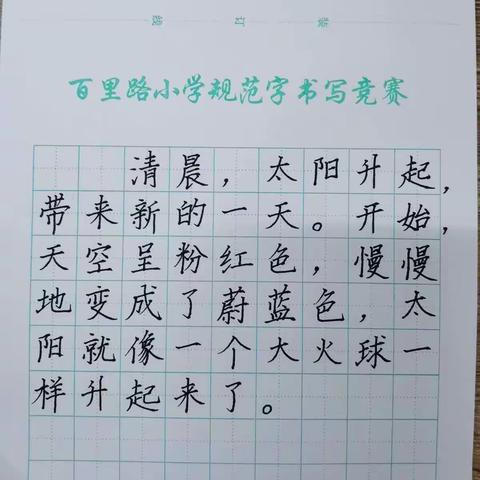 线 订 装
百里路小学规范字书写竞赛
清晨，太阳升起，
带来新的一天。开始，
天空呈粉红色，慢慢
地变成了蔚蓝色，太
阳就像一个大火球一
样升起来了。